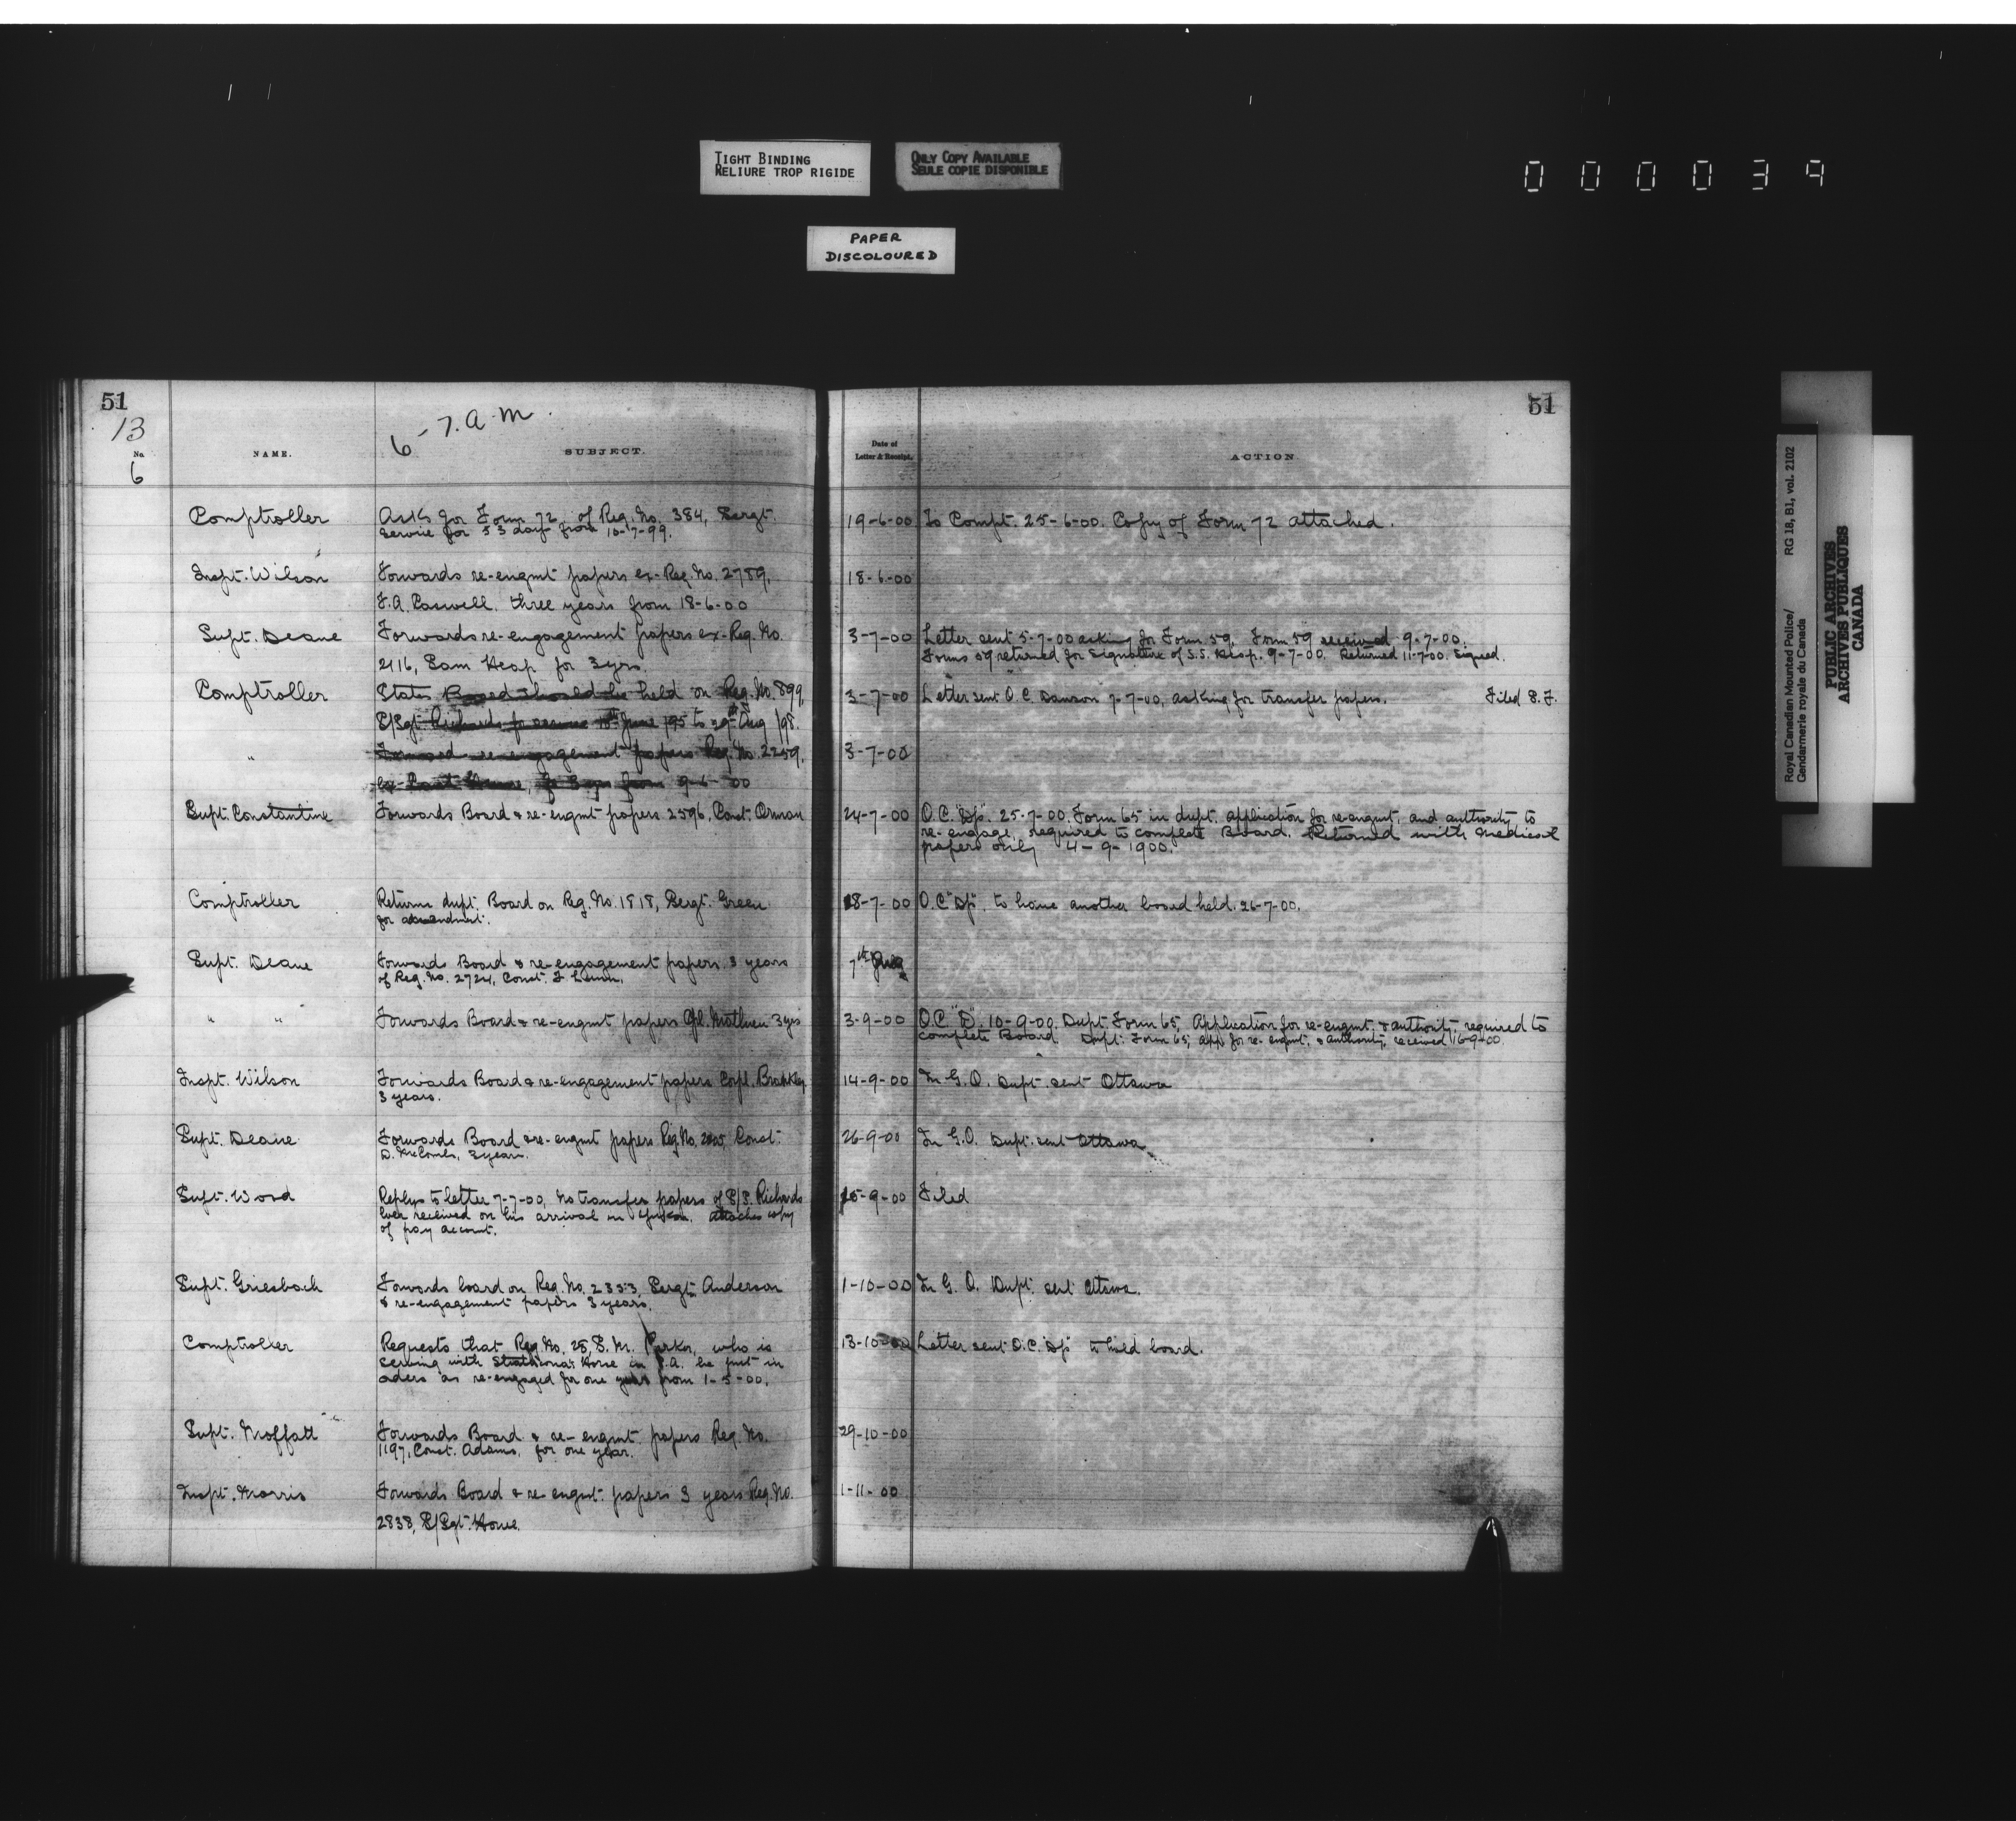 TIGHT BINDING
RELIURE TROP RIGIDE
ONLY COPY AVAILABLE
SEULE COPIE DISPONIBLE
000039
PAPER
DISCOLOURED
51
13
6 - 7. a.m.
No.
6
NAME.
SUBJECT.
Comptroller
Asks for Form 72 of Reg. No. 384, Sergt.
Service for 53 days from 10-7-99.
Inspt. Wilson
Forwards re-engmt papers ex-Reg. No. 2789,
F.A. Caswell, three years from 18-6-00
Supt. Deane
Forwards re-engagement papers ex-Reg. No.
2116, Sam Heap for 3 yrs.
Comptroller
States Board should be held on Reg. No. 899,
S/Sgt. Richards for service June /95 to 29th Aug /98.
"
re-engagement papers Reg. No. 2259,
for 3 yrs from 9-6-00
Supt. Constantine
Forwards Board & re-engmt papers 2596, Const. Orman
Comptroller
Returns dupt. Board on Reg. No. 1818, Sergt. Green
for amendment.
Supt. Deane
Forwards Board & re-engagement papers 3 years
of Reg. No. 2724, Const. F.
" "
Forwards Board & re-engmt papers Cpl. Mathieu 3 yrs
Inspt. Wilson
Forwards Board & re-engagement papers Corpl.
3 years.
Supt. Deane
Forwards Board & re-engmt papers Reg. No. Const.
D. McCombs, 3 years.
Supt. Wood
Replys to letter 7-7-00, no transfer papers of S/S. Richards
ever received on his arrival in Yukon. attaches copy
of pay account.
Supt. Griesbach
Forwards board on Reg. No. 2353, Sergt. Anderson
& re-engagement papers 3 years.
Comptroller
Requests that Reg. No. 28, S.M. Parker, who is
serving with Strathcona's Horse in S.A. be put in
orders as re-engaged for one year from 1-5-00.
Supt. Moffatt
Forwards Board & re-engmt. papers Reg. No.
1197, Const. Adams, for one year.
Inspt. Morris
Forwards Board & re-engmt. papers 3 years Reg. No.
2838, S/Sgt. Howe.
51
Date of
Letter & Receipt.
ACTION
19-6-00 To Compt. 25-6-00. Copy of Form 72 attached.
18-6-00
3-7-00 Letter sent 5-7-00 asking for Form 59. Form 59 received 9-7-00.
Forms 59 returned for Signature of S.S. Heap. 9-7-00. Returned 11-7-00. Signed.
3-7-00 Letter sent O.C. Dawson 7-7-00, asking for transfer papers. Filed S.F.
3-7-00
24-7-00 O.C. "Dp". 25-7-00. Form 65 in dupt. application for re-engmt, and authority to
re-engage, required to complete Board. Returned with medical
papers only 4-9-1900.
18-7-00 O.C. "Dp". to have another board held. 26-7-00.
7th Aug
3-9-00 O.C. "D". 10-9-00. Dupt. Form 65, Application for re-engmt. & authority, required to
complete Board. Dupt. Form 65, app. for re-engmt. & authority, received 16-9-00.
14-9-00 In G.O. Dupt. sent Ottawa
26-9-00 In G.O. Dupt. sent Ottawa
15-9-00 Filed
1-10-00 In G.O. Dupt. sent Ottawa.
13-10-00 Letter sent O.C. "Dp" to hold board.
29-10-00
1-11-00
Royal Canadian Mounted Police/ RG 18, B1, vol. 2102
Gendarmerie royale du Canada
PUBLIC ARCHIVES
ARCHIVES PUBLIQUES
CANADA